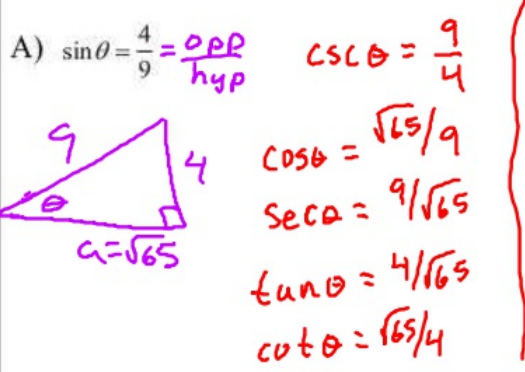 A) sinθ = 4/9 = opp/hyp
cscθ = 9/4
9
4
θ
a=√65
cosθ = √65/9
secθ = 9/√65
tanθ = 4/√65
cotθ = √65/4